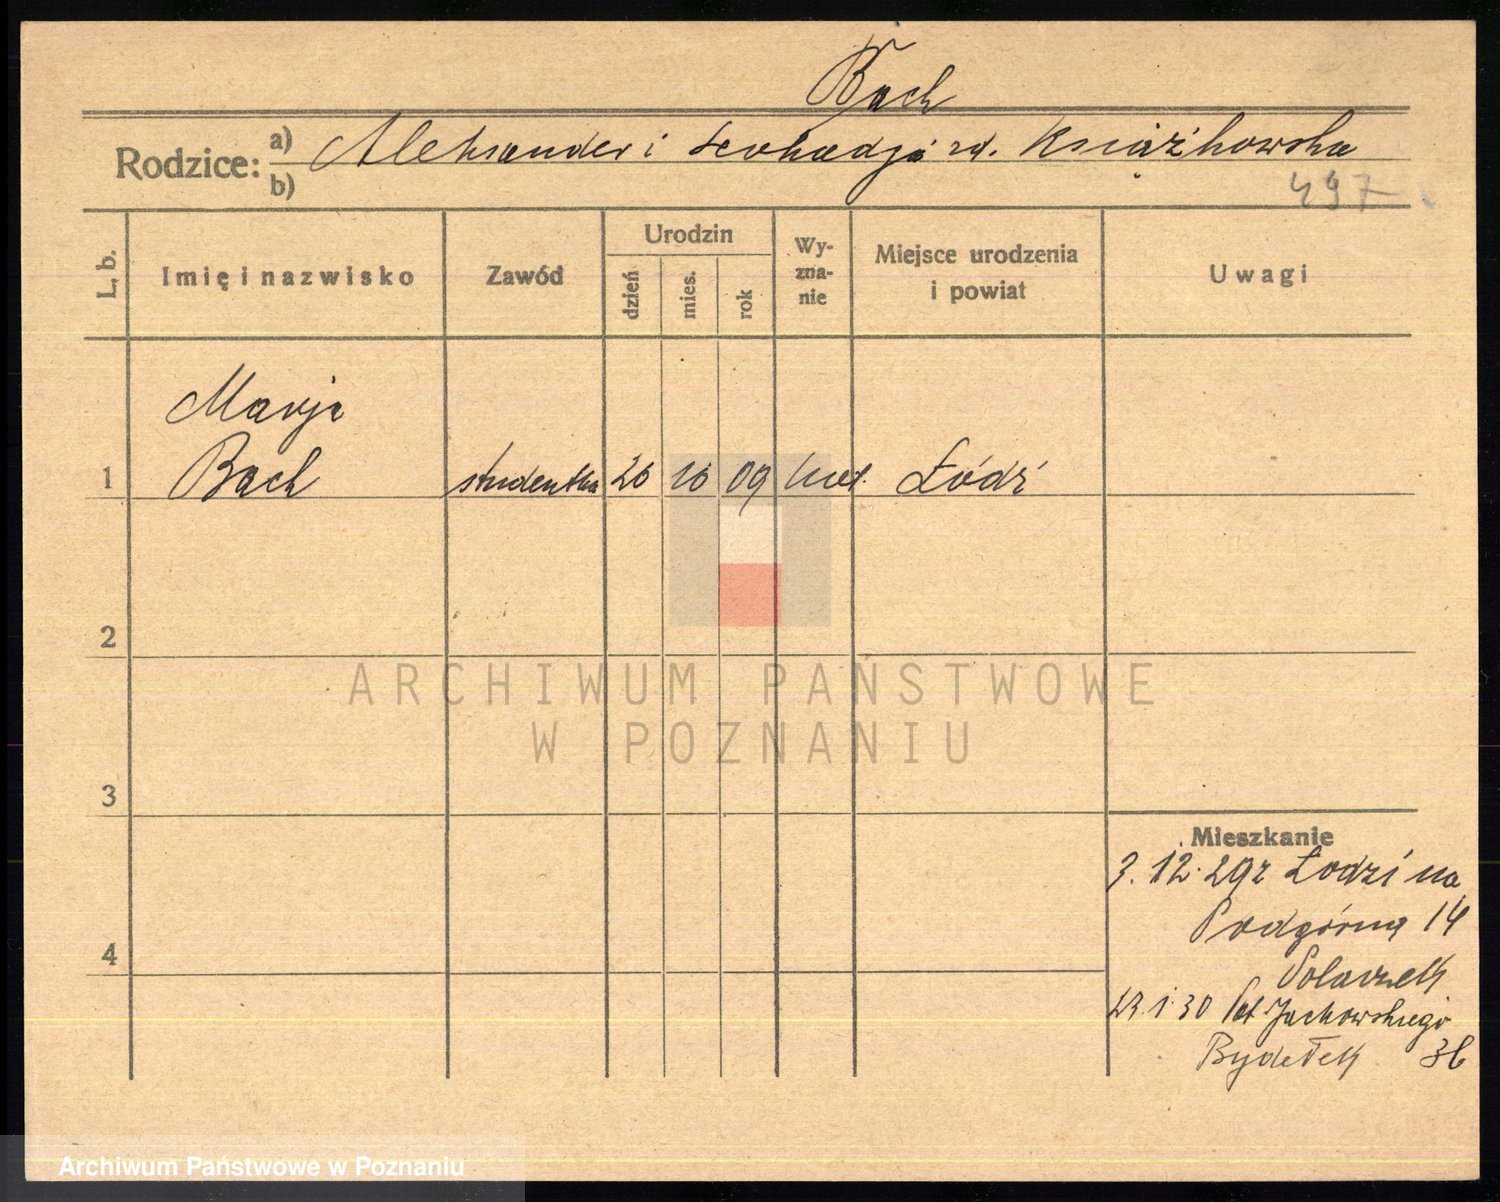 Bach
Rodzice: a) Aleksander i Leokadja zd. Książkowska
b)
497
L. b.
Imię i nazwisko
Zawód
Urodzin
dzień
mies.
rok
Wy-
zna-
nie
Miejsce urodzenia
i powiat
Uwagi
Marja
1 Bach studentka 26 10 09 kat. Łódź
2
3
4
Mieszkanie
3.12.29 z Łodzi na
Podgórną 14
23.1.30 Pat. Jackowskiego
36
ARCHIWUM PAŃSTWOWE
W POZNANIU
Archiwum Państwowe w Poznaniu